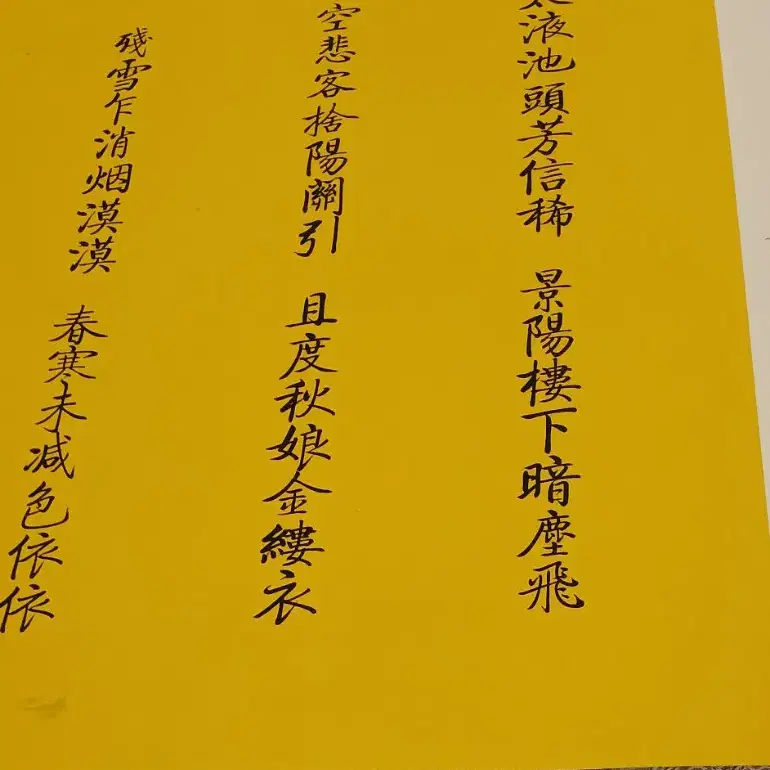 液池頭芳信稀 景陽樓下暗塵飛
空悲客捨陽關引 且度秋娘金縷衣
殘雪乍消烟漠漠 春寒未減色依依